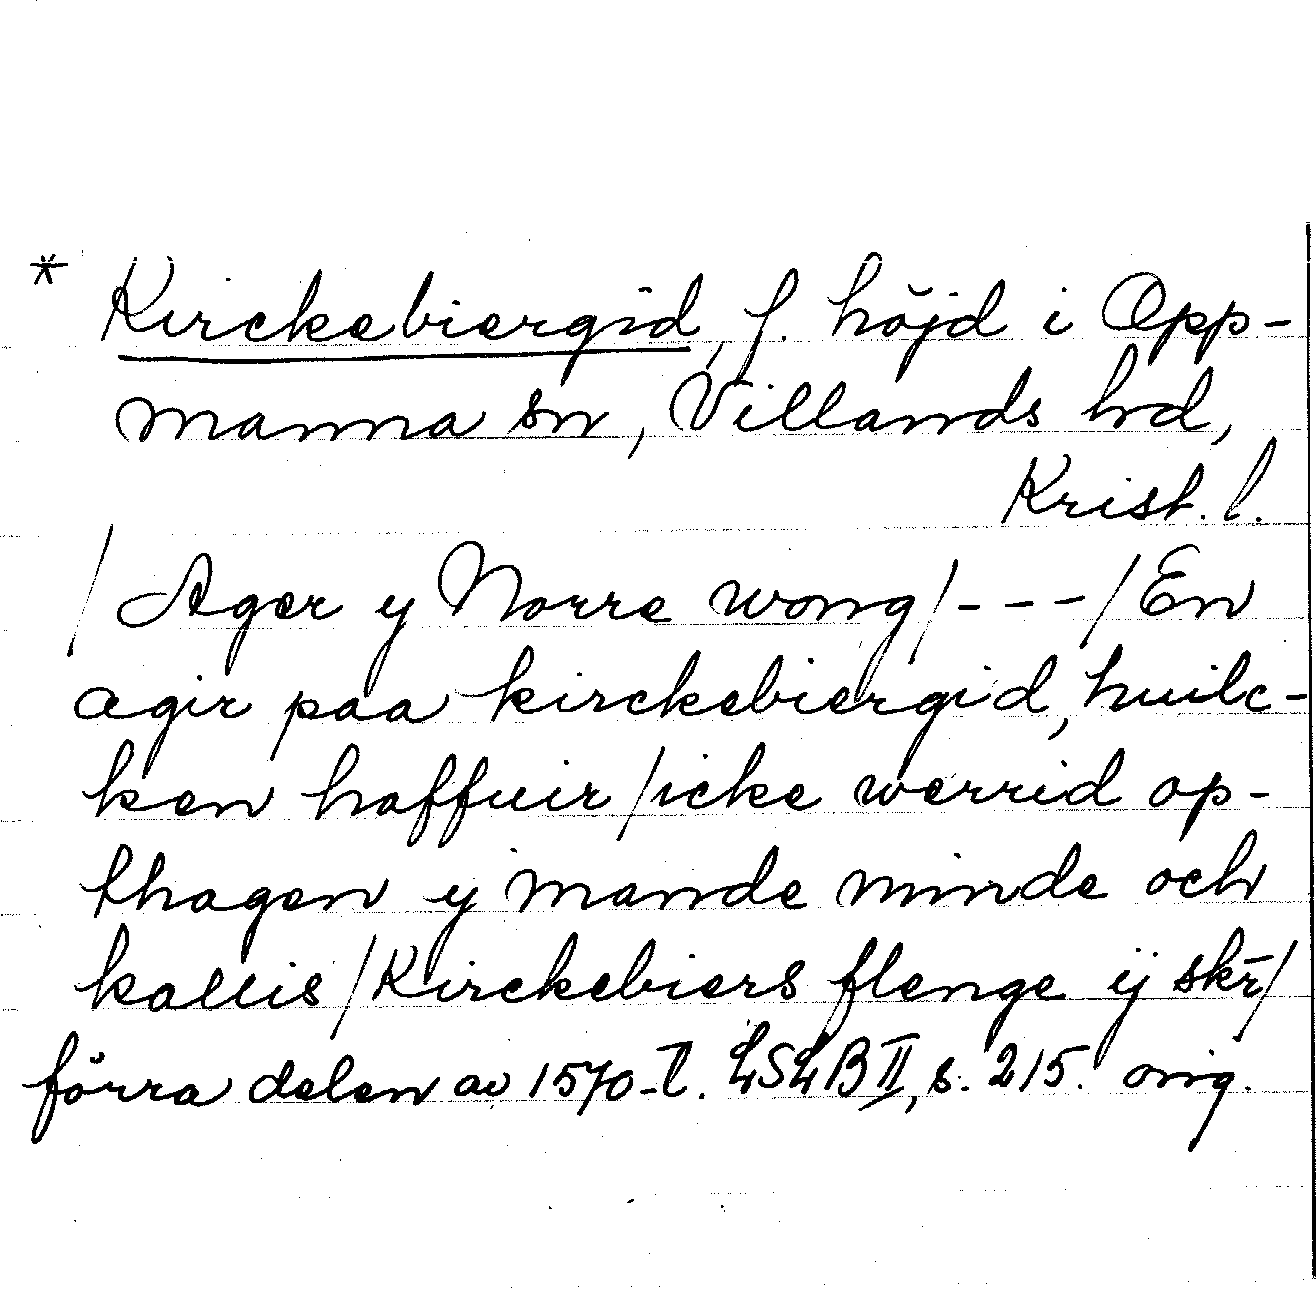 * Kirckebiergid, f. höjd i Opp-
manna sn, Villands hd,
Krist. l.
/ Ager y Norre wong / - - - / En
agir paa kirckebiergid, huilc-
ken haffuir / icke werrid op-
thagen y mande minde och
kallis / Kirckebiers flenge ij skr̄ /
förra delen av 1570-t. LSLB II, s. 215. orig.